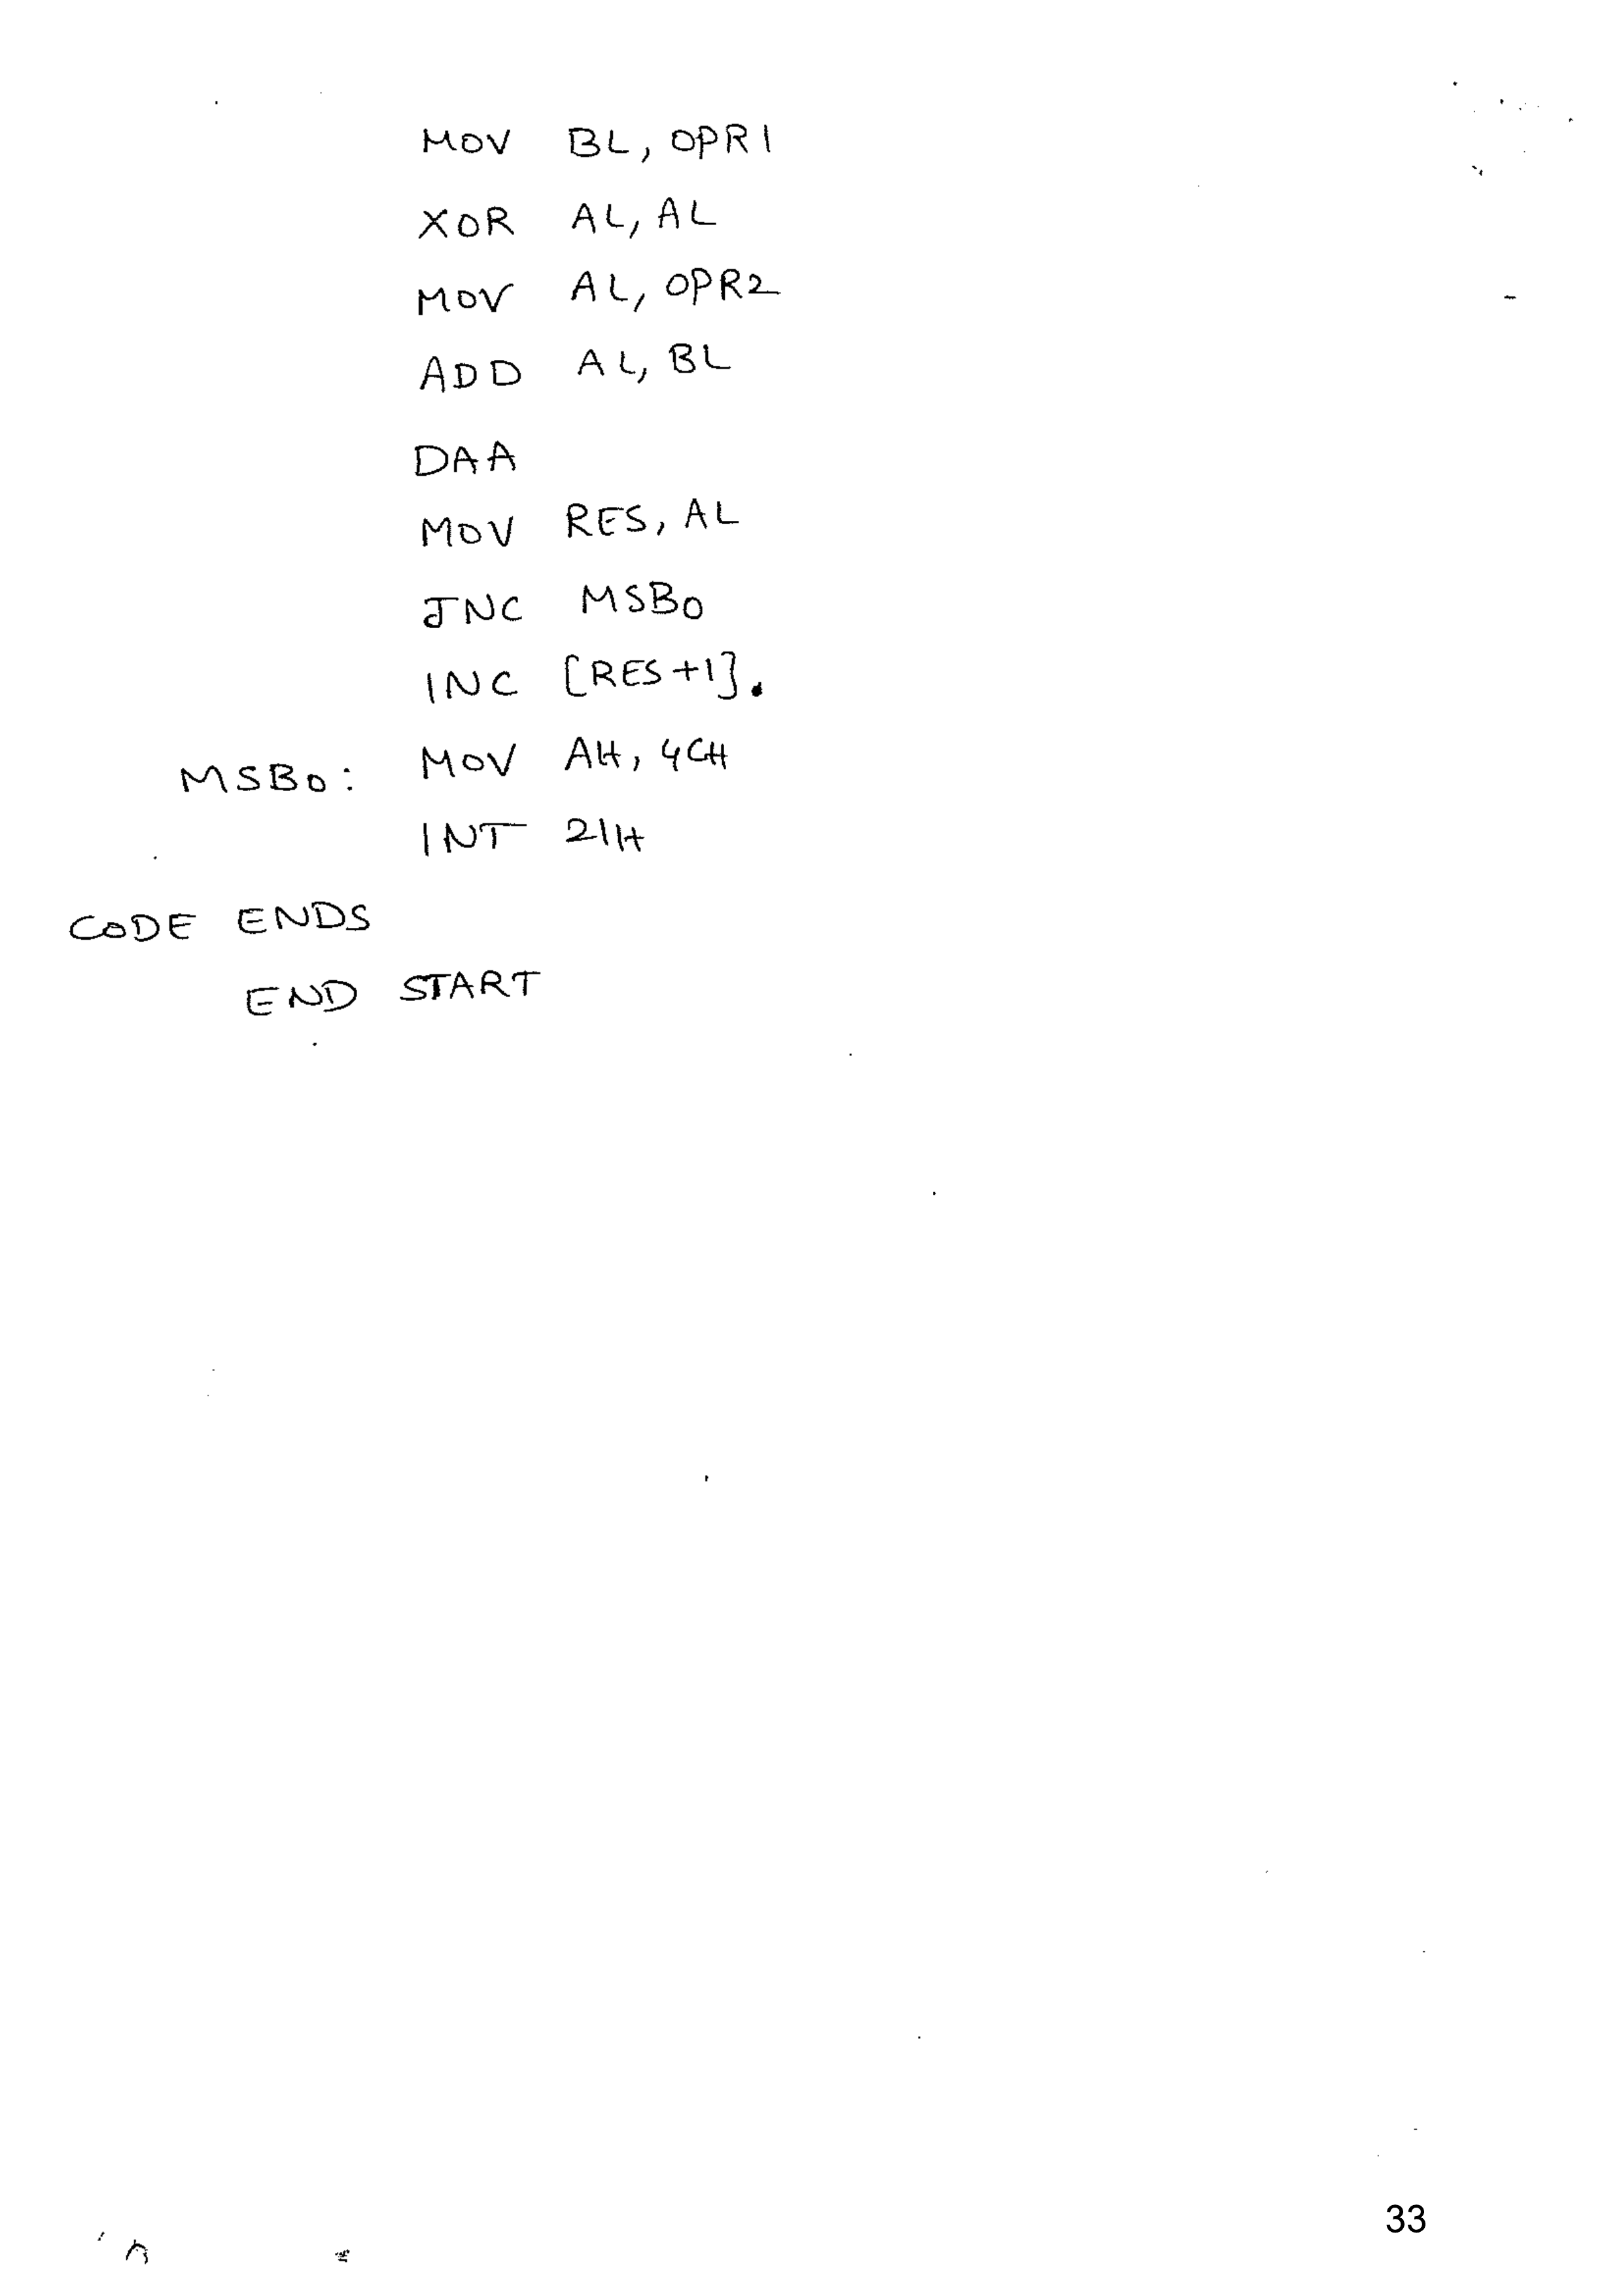 MOV BL, OPR1
XOR AL, AL
MOV AL, OPR2
ADD AL, BL
DAA
MOV RES, AL
JNC MSB0
INC [RES+1].
MSB0: MOV AH, 4CH
INT 21H
CODE ENDS
END START
33